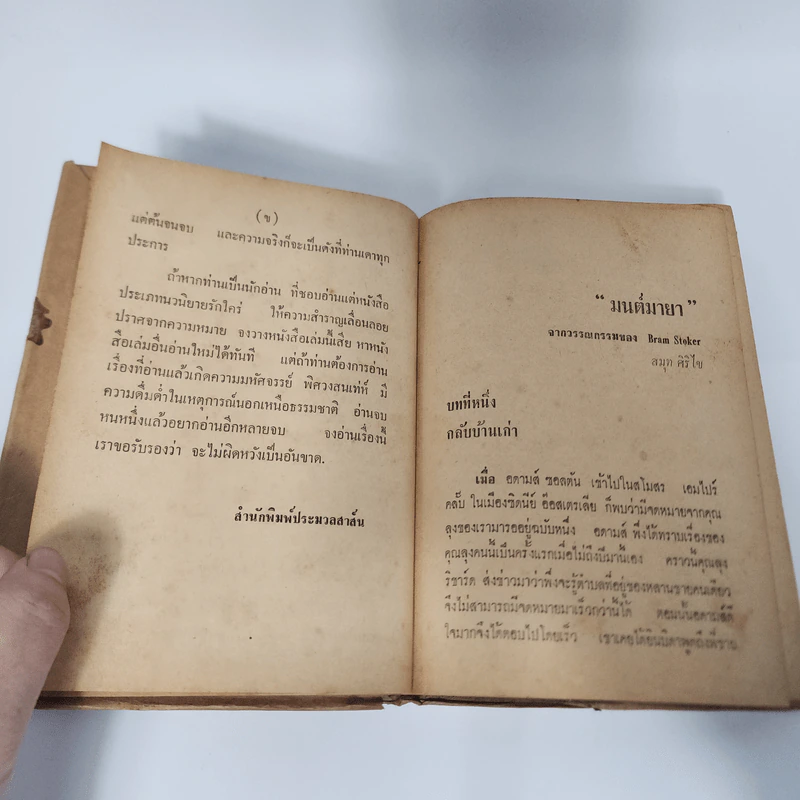 (ข)
แต่ต้นจนจบ และความจริงก็จะเป็นดังที่ท่านเดาทุก
ประการ
ถ้าหากท่านเป็นนักอ่าน ที่ชอบอ่านแต่หนังสือ
ประเภทนวนิยายรักใคร่ ให้ความสำราญเลื่อนลอย
ปราศจากความหมาย จงวางหนังสือเล่มนี้เสีย หาหนัง
สือเล่มอื่นอ่านใหม่ได้ทันที แต่ถ้าท่านต้องการอ่าน
เรื่องที่อ่านแล้วเกิดความมหัศจรรย์ พิศวงสนเท่ห์ มี
ความดื่มด่ำในเหตุการณ์นอกเหนือธรรมชาติ อ่านจบ
หนหนึ่งแล้วอยากอ่านอีกหลายจบ จงอ่านเรื่องนี้
เราขอรับรองว่า จะไม่ผิดหวังเป็นอันขาด.
สำนักพิมพ์ประมวลสาส์น
“ มนต์มายา ”
จากวรรณกรรมของ Bram Stoker
สมุท ศิริไข
บทที่หนึ่ง
กลับบ้านเก่า
เมื่อ อดามส์ ซอลตัน เข้าไปในสโมสร เอมไปร์
คลับ ในเมืองซิดนีย์ อ๊อสเตรเลีย ก็พบว่ามีจดหมายจากคุณ
ลุงของเรามารออยู่ฉบับหนึ่ง อดามส์ พึ่งได้ทราบเรื่องของ
คุณลุงคนนี้เป็นครั้งแรกเมื่อไม่ถึงปีมานี้เอง คราวนี้คุณลุง
ริชาร์ด ส่งข่าวมาว่าพึ่งจะรู้ตำบลที่อยู่ของหลานชายคนเดียว
จึงไม่สามารถมีจดหมายมาเร็วกว่านี้ได้ ตอนนั้นอดามส์ดี
ใจมากจึงได้ตอบไปโดยเร็ว เขาเคยได้ยินบิดาพูดถึงพี่ชาย